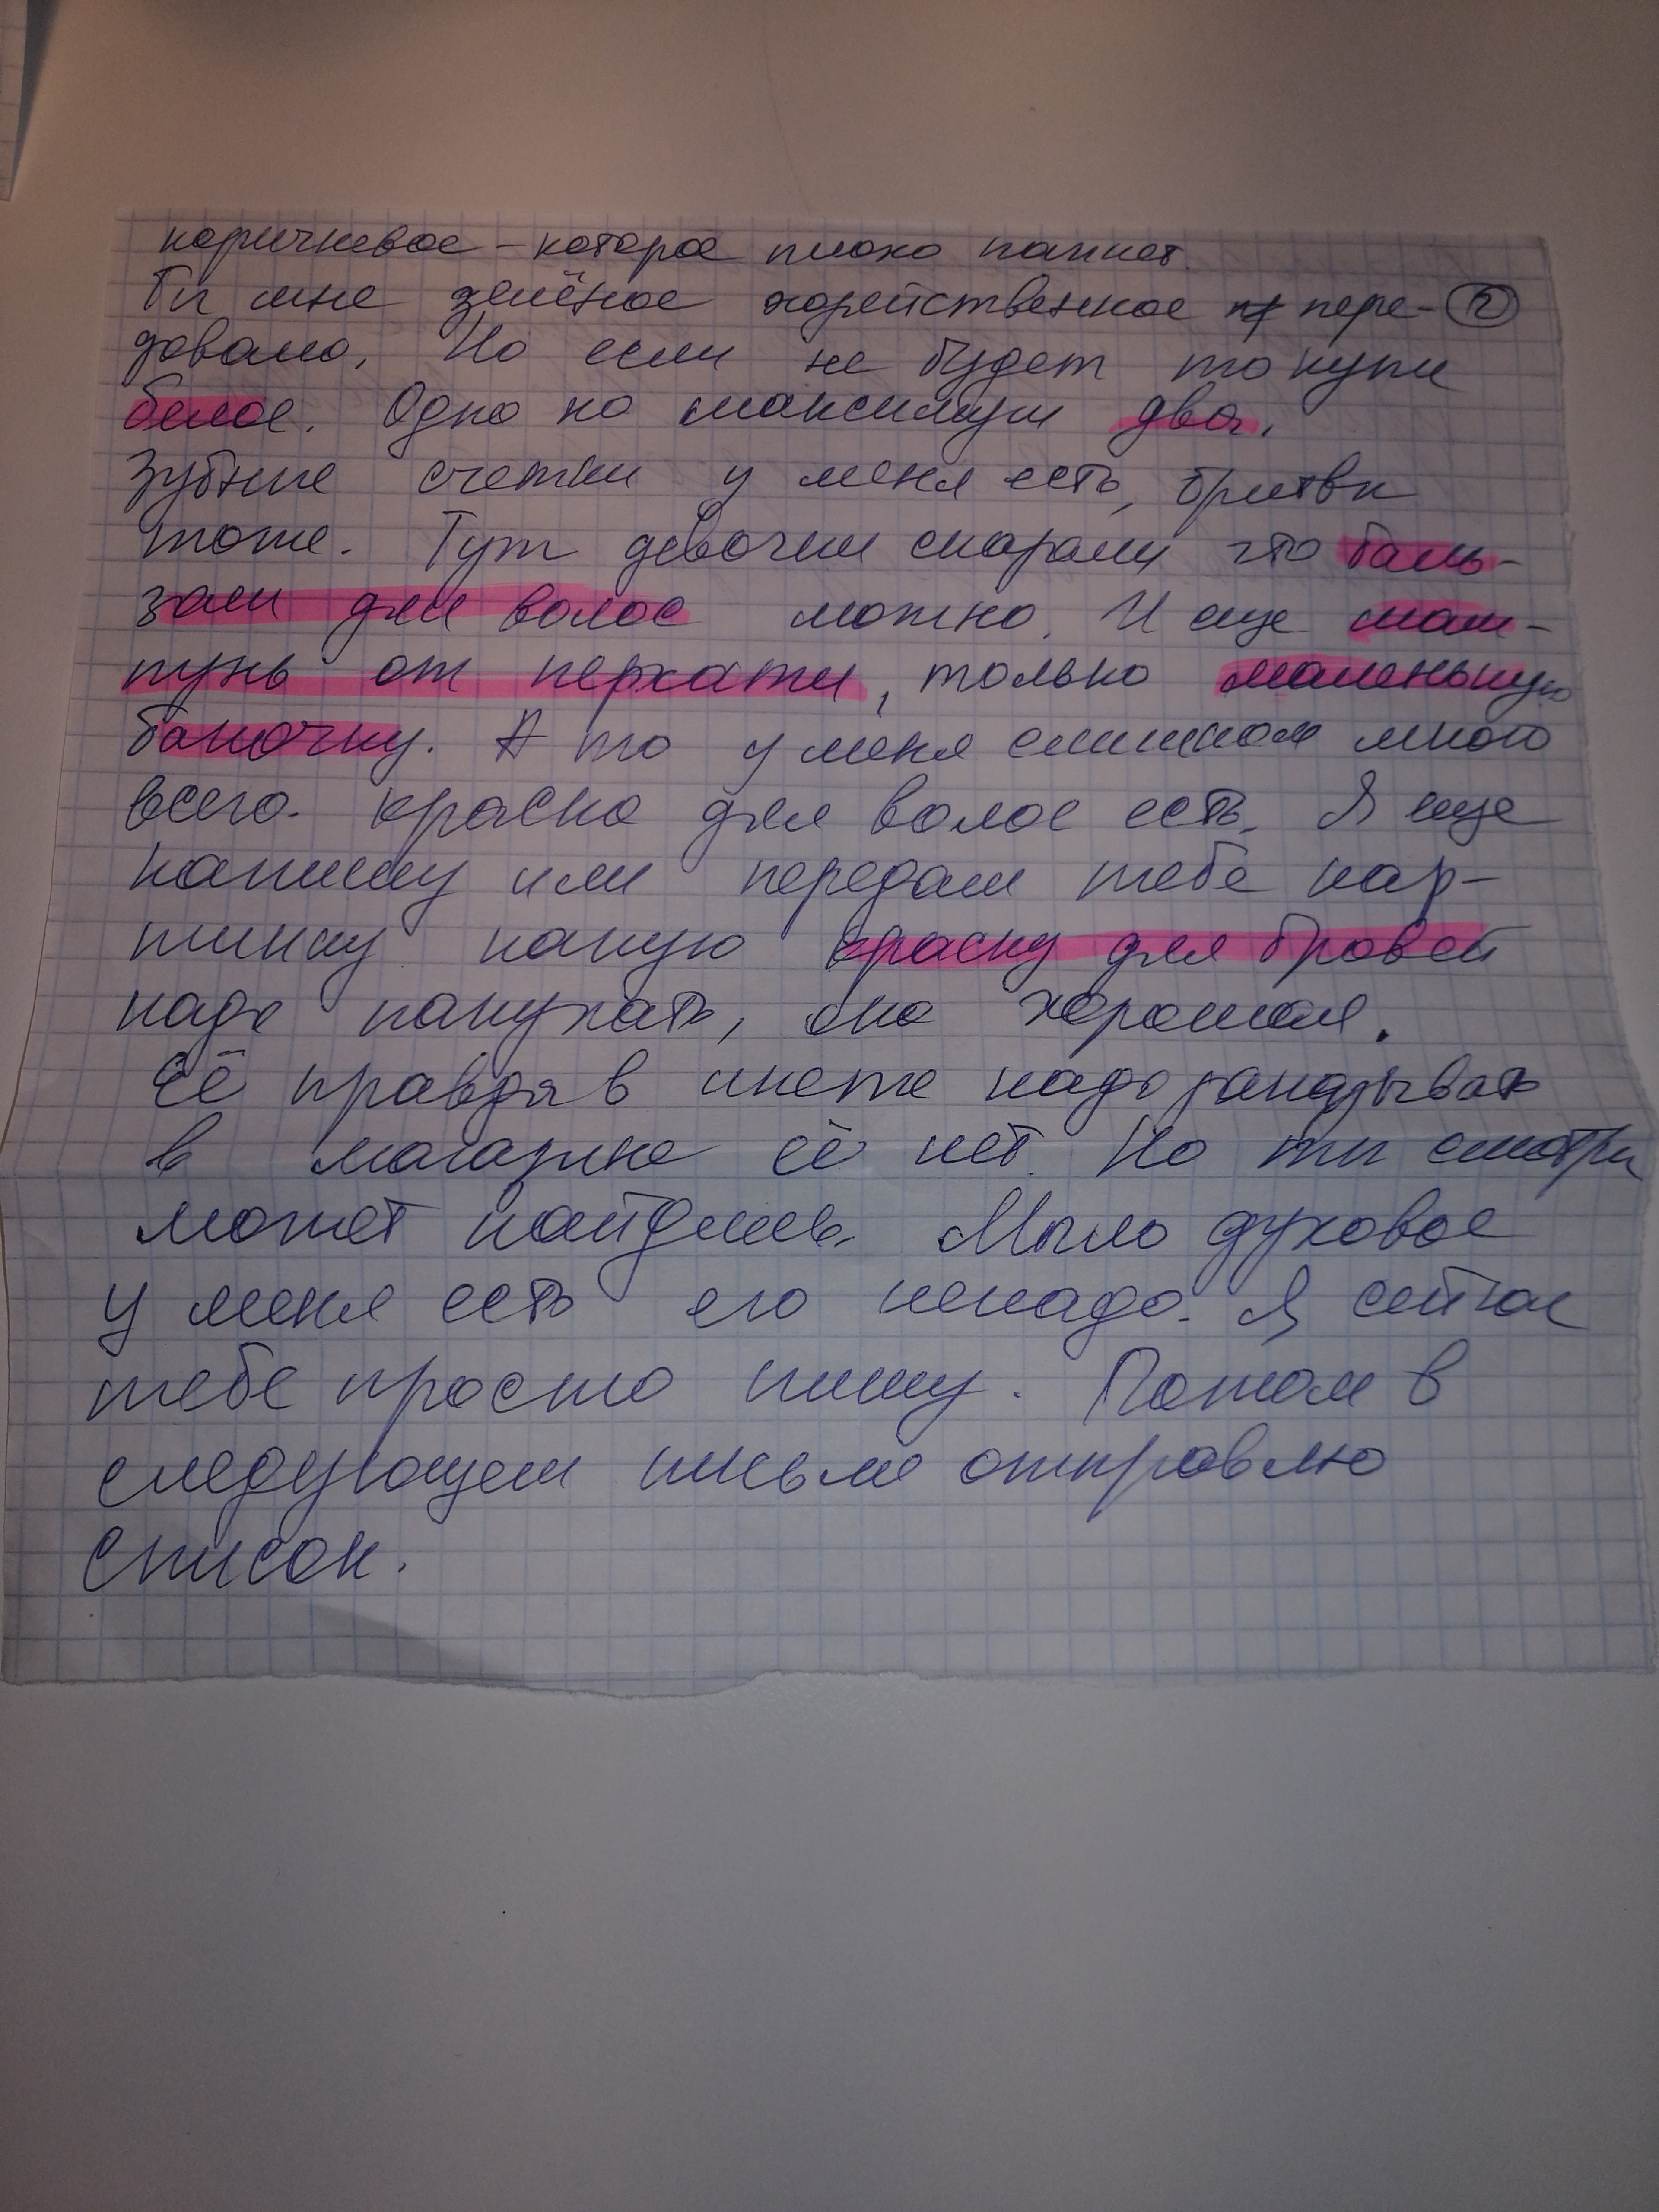 коричневое - которое плохо пахнет.
Ты мне зелёное хозяйственное пере- 2
довала. Но если не будет то купи
белое. Одно но максимум два.
Зубные счетки у меня есть, бритвы
тоже. Тут девочки сказали что баль-
зам для волос можно. И еще шам-
пунь от перхати, только маленькую
баночку. А то у меня слишком много
всего. краска для волос есть. Я еще
напишу или передам тебе кар-
тинку какую краску для бровей
надо покупать, она хорошая.
Её правда в инете надо заказывать
в магазине её нет. Но ты смотри
может найдешь. Мыло духовое
у меня есть его ненадо. Я сейчас
тебе просто пишу. Потом в
следующем письме отправлю
список.